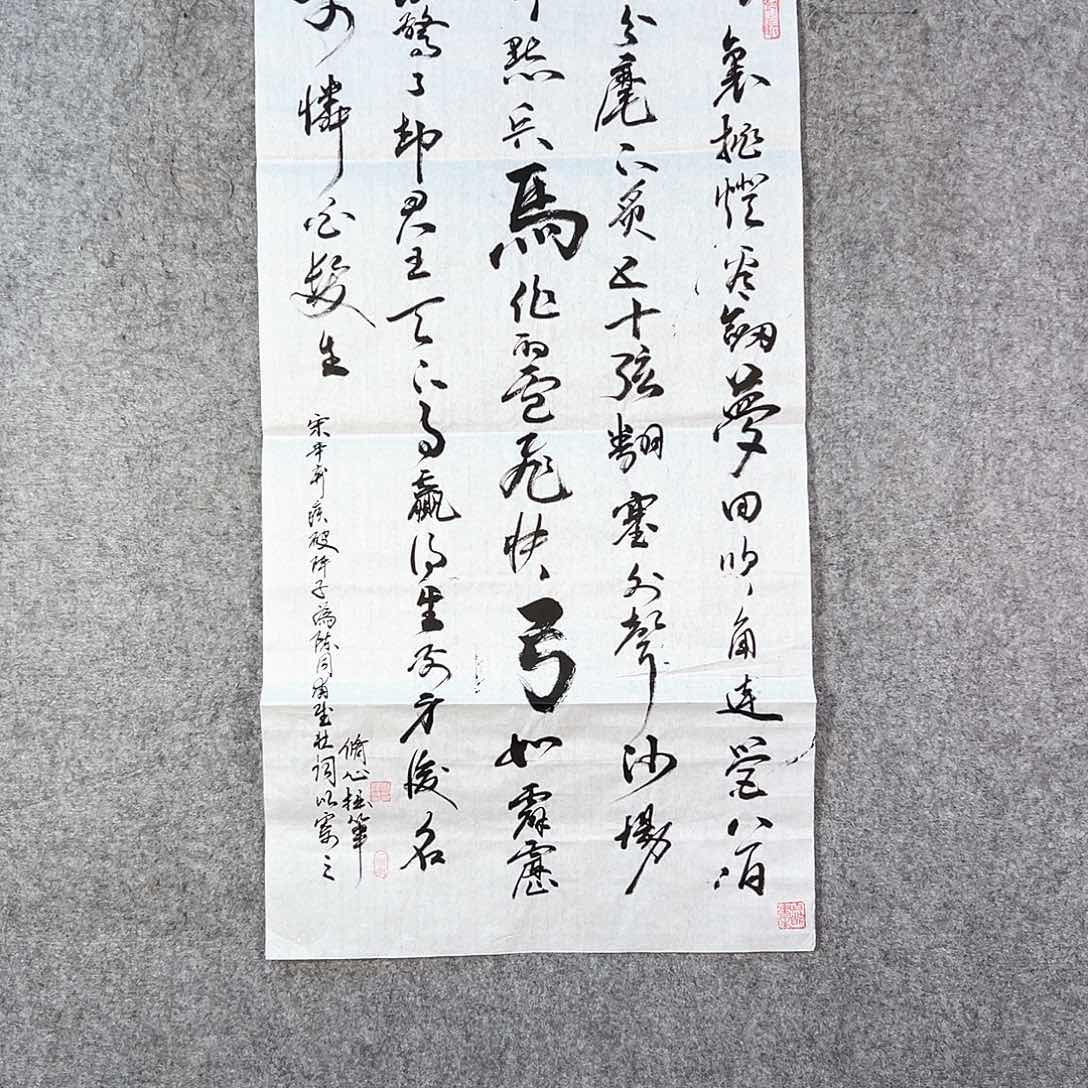 裏挑燈看劍夢回吹角連營八百
分麾下炙五十弦翻塞外聲沙場
點兵馬作的盧飛快弓如霹靂
驚了却君王天下事贏得生前身後名
可憐白髮生
宋辛棄疾破陣子為陳同甫賦壯詞以寄之
脩心拙筆